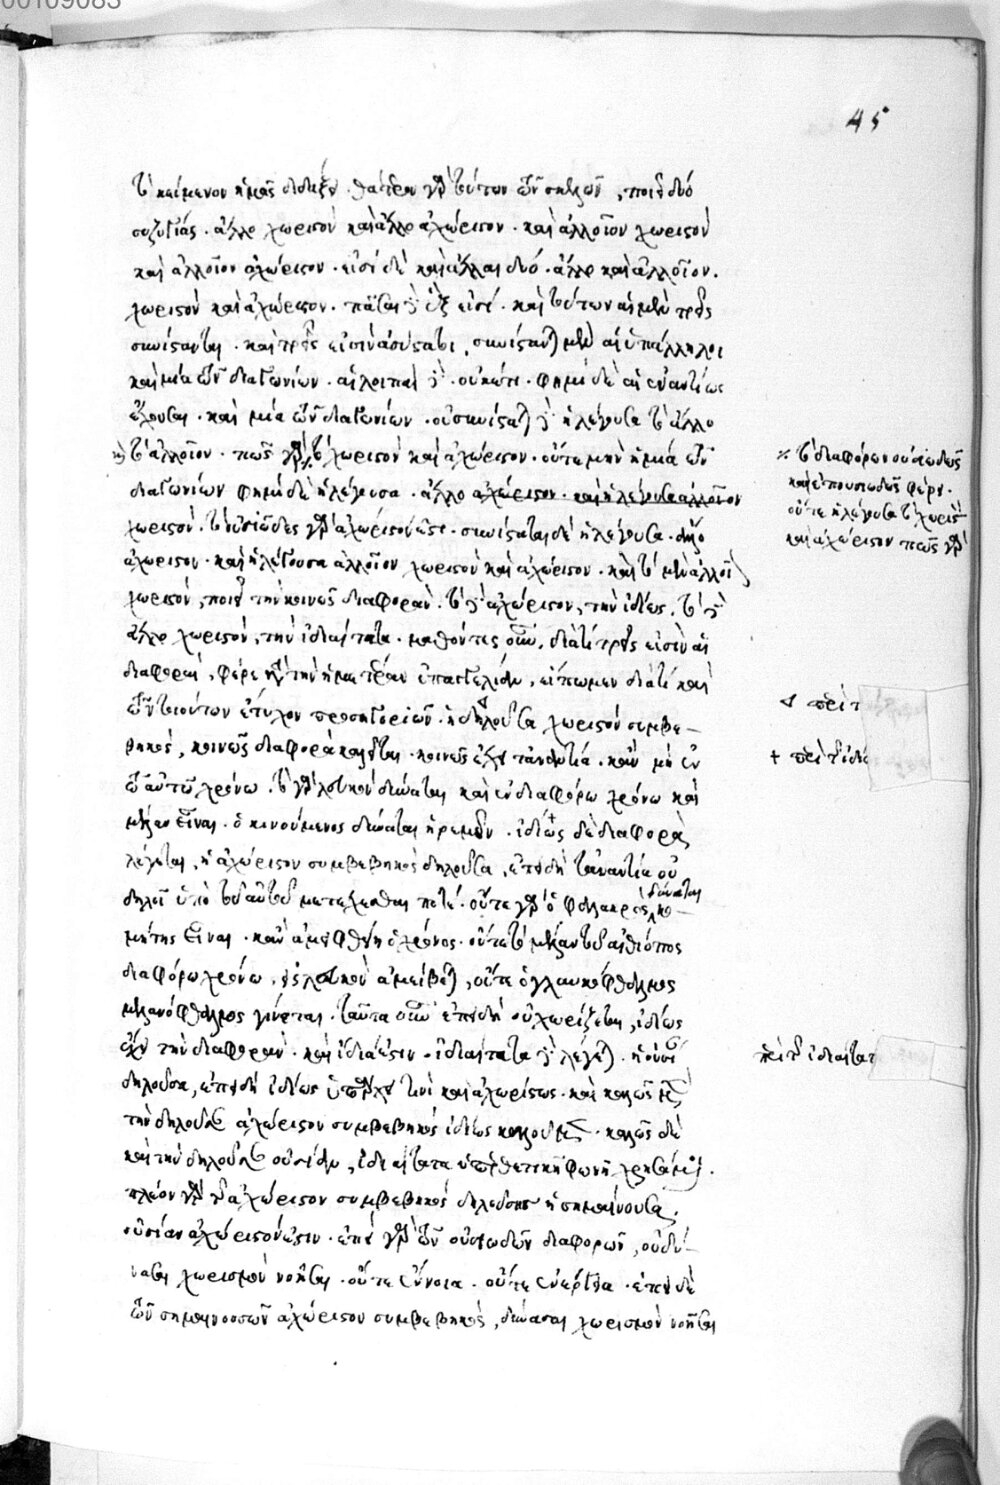 00109083
45
τὸ κείμενον ἡμᾶς διδάξει · θάτερον γὰρ τούτων τῶν σκελῶν, ποιεῖ δύο
συζυγίας · ἄλλο χωριστὸν καὶ ἄλλο ἀχώριστον · καὶ ἀλλοῖον χωριστὸν
καὶ ἀλλοῖον ἀχώριστον · εἰσὶ δὲ καὶ ἄλλαι δύο · ἄλλο καὶ ἀλλοῖον ·
χωριστὸν καὶ ἀχώριστον · πᾶσαι δὲ ἓξ εἰσί · καὶ τούτων αἱ μὲν τρεῖς
συνίστανται · καὶ τρεῖς εἰσὶν ἀσύστατοι, συνίστανται μὲν αἱ ὑπάλληλοι
καὶ μία τῶν διαγωνίων · αἱ λοιπαὶ δὲ οὐκέτι · φημὶ δὲ αἱ ἐναντίως
ἔχουσαι · καὶ μία τῶν διαγωνίων · οὐ συνίσταται δὲ ἡ λέγουσα τὸ ἄλλο
καὶ τὸ ἀλλοῖον · πῶς γὰρ τὸ χωριστὸν καὶ ἀχώριστον · οὔτε μὴν ἡ μία τῶν
διαγωνίων φημὶ δὲ ἡ λέγουσα · ἄλλο ἀχώριστον · καὶ ἡ λέγουσα ἀλλοῖον
χωριστόν · τὸ οὐσιῶδες γὰρ ἀχώριστόν ἐστι · συνίσταται δὲ ἡ λέγουσα · ἄλλο
ἀχώριστον · καὶ ἡ λέγουσα ἀλλοῖον χωριστὸν καὶ ἀχώριστον · καὶ τὸ μὲν ἀλλοῖον
χωριστόν, ποιεῖ τὴν κοινῶς διαφοράν · τὸ δὲ ἀχώριστον, τὴν ἰδίως · τὸ δὲ
ἄλλο χωριστόν, τὴν ἰδιαίτατα · μαθόντες οὖν, διατί τρεῖς εἰσὶν αἱ
διαφοραί, φέρε κατὰ τὴν ἡμετέραν ἐπαγγελίαν, εἴπωμεν διατί καὶ
τῶν τοιούτων ἔτυχον προσηγοριῶν · ἡ δηλοῦσα χωριστὸν συμβε-
βηκός, κοινῶς διαφορὰ καλεῖται · κοινῶς ἔχει τἀναντία · κἂν μὴ ἐν
τῷ αὐτῷ χρόνῳ · τὸ γὰρ λευκὸν δύναται καὶ ἐν διαφόρῳ χρόνῳ καὶ
μέλαν εἶναι · ὁ κινούμενος δύναται ἠρεμεῖν · ἰδίως δὲ διαφορὰ
λέγεται, ἡ ἀχώριστον συμβεβηκὸς δηλοῦσα, ἐπειδὴ τἀναντία οὐ
δηλοῖ ὑπὸ τοῦ αὐτοῦ μετέχεσθαι ποτέ · οὔτε γὰρ ὁ φαλακρὸς δύναται κο-
μήτης εἶναι · κἂν ἀμειφθείη ὁ χρόνος · οὔτε τὸ μέλαν τοῦ αἰθίοπος
διαφόρῳ χρόνῳ, εἰς λευκὸν ἀμείβεται, οὔτε ὁ γλαυκόφθαλμος
μελανόφθαλμος γίνεται · ταῦτα οὖν ἐπειδὴ οὐ χωρίζεται, ἰδίως
ἔχει τὴν διαφοράν · καὶ ἰδία ἐστιν · ἰδιαίτατα δὲ λέγεται · ἡ οὐσίαν
δηλοῦσα, ἐπειδὴ ἰδίως ὑπάρχει τινὶ καὶ ἀχωρίστως · καὶ καλῶς
τὴν δηλοῦσαν ἀχώριστον συμβεβηκὸς ἰδίως καλοῦμεν · καλῶς δὲ
καὶ τὴν δηλοῦσαν οὐσίαν, ἰδιαίτατα ὑπερθετικῇ φωνῇ χρησάμενοι ·
πλέον γὰρ τῆς ἀχώριστον συμβεβηκὸς δηλούσης ἡ σημαίνουσα,
οὐσίαν ἀχώριστόν ἐστιν · ἐπεὶ γὰρ τῶν οὐσιωδῶν διαφορῶν, οὐ δύ-
ναται χωρισμὸν νοεῖσθαι · οὔτε ἔννοια · οὔτε ἐνέργεια · ἐπὶ δὲ
τῶν σημαινουσῶν ἀχώριστον συμβεβηκὸς, δύνασαι χωρισμὸν νοεῖσθαι
τὸ διαφόρων οὐσιωδῶς
καὶ ἐπουσιωδῶς φέρει ·
οὔτε ἡ λέγουσα τὸ χωριστὸν
καὶ ἀχώριστον πῶς γὰρ
περὶ τ
+ περὶ τοῦ ἰδίως
περὶ τοῦ ἰδιαίτατ